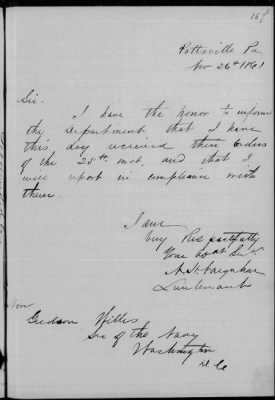 167
Pottsville Pa
Nov 26th 1861
Sir.
I have the honor to inform
the Department, that I have
this day received their Orders
of the 25th inst, and that I
will report in compliance with
them.
I am
very Respectfully
Your obdt Servt
N. H. Farquhar
Lieutenant
Hon
Gideon Willis
Sec of the Navy
Washington
D.C.